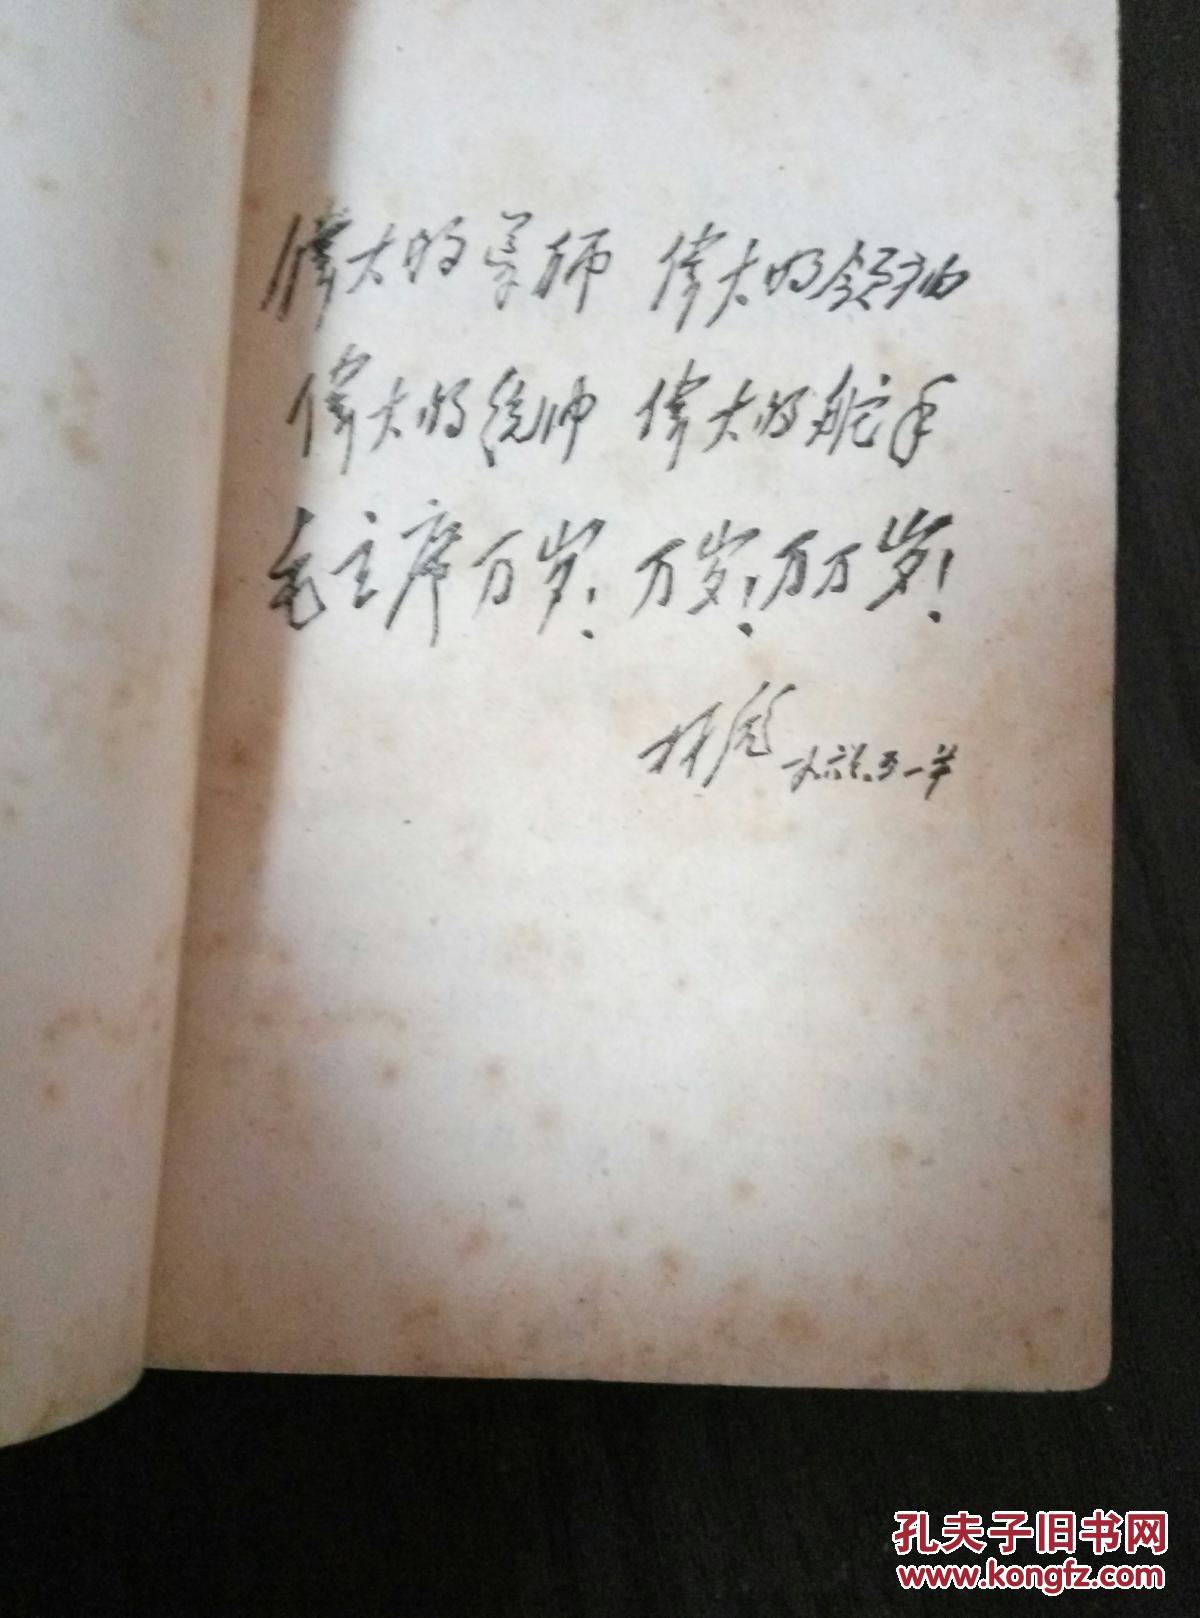 偉大的导师 偉大的领袖
偉大的统帅 偉大的舵手
毛主席万岁！万岁！万万岁！
林彪 一九六七.五一前
孔夫子旧书网
www.kongfz.com